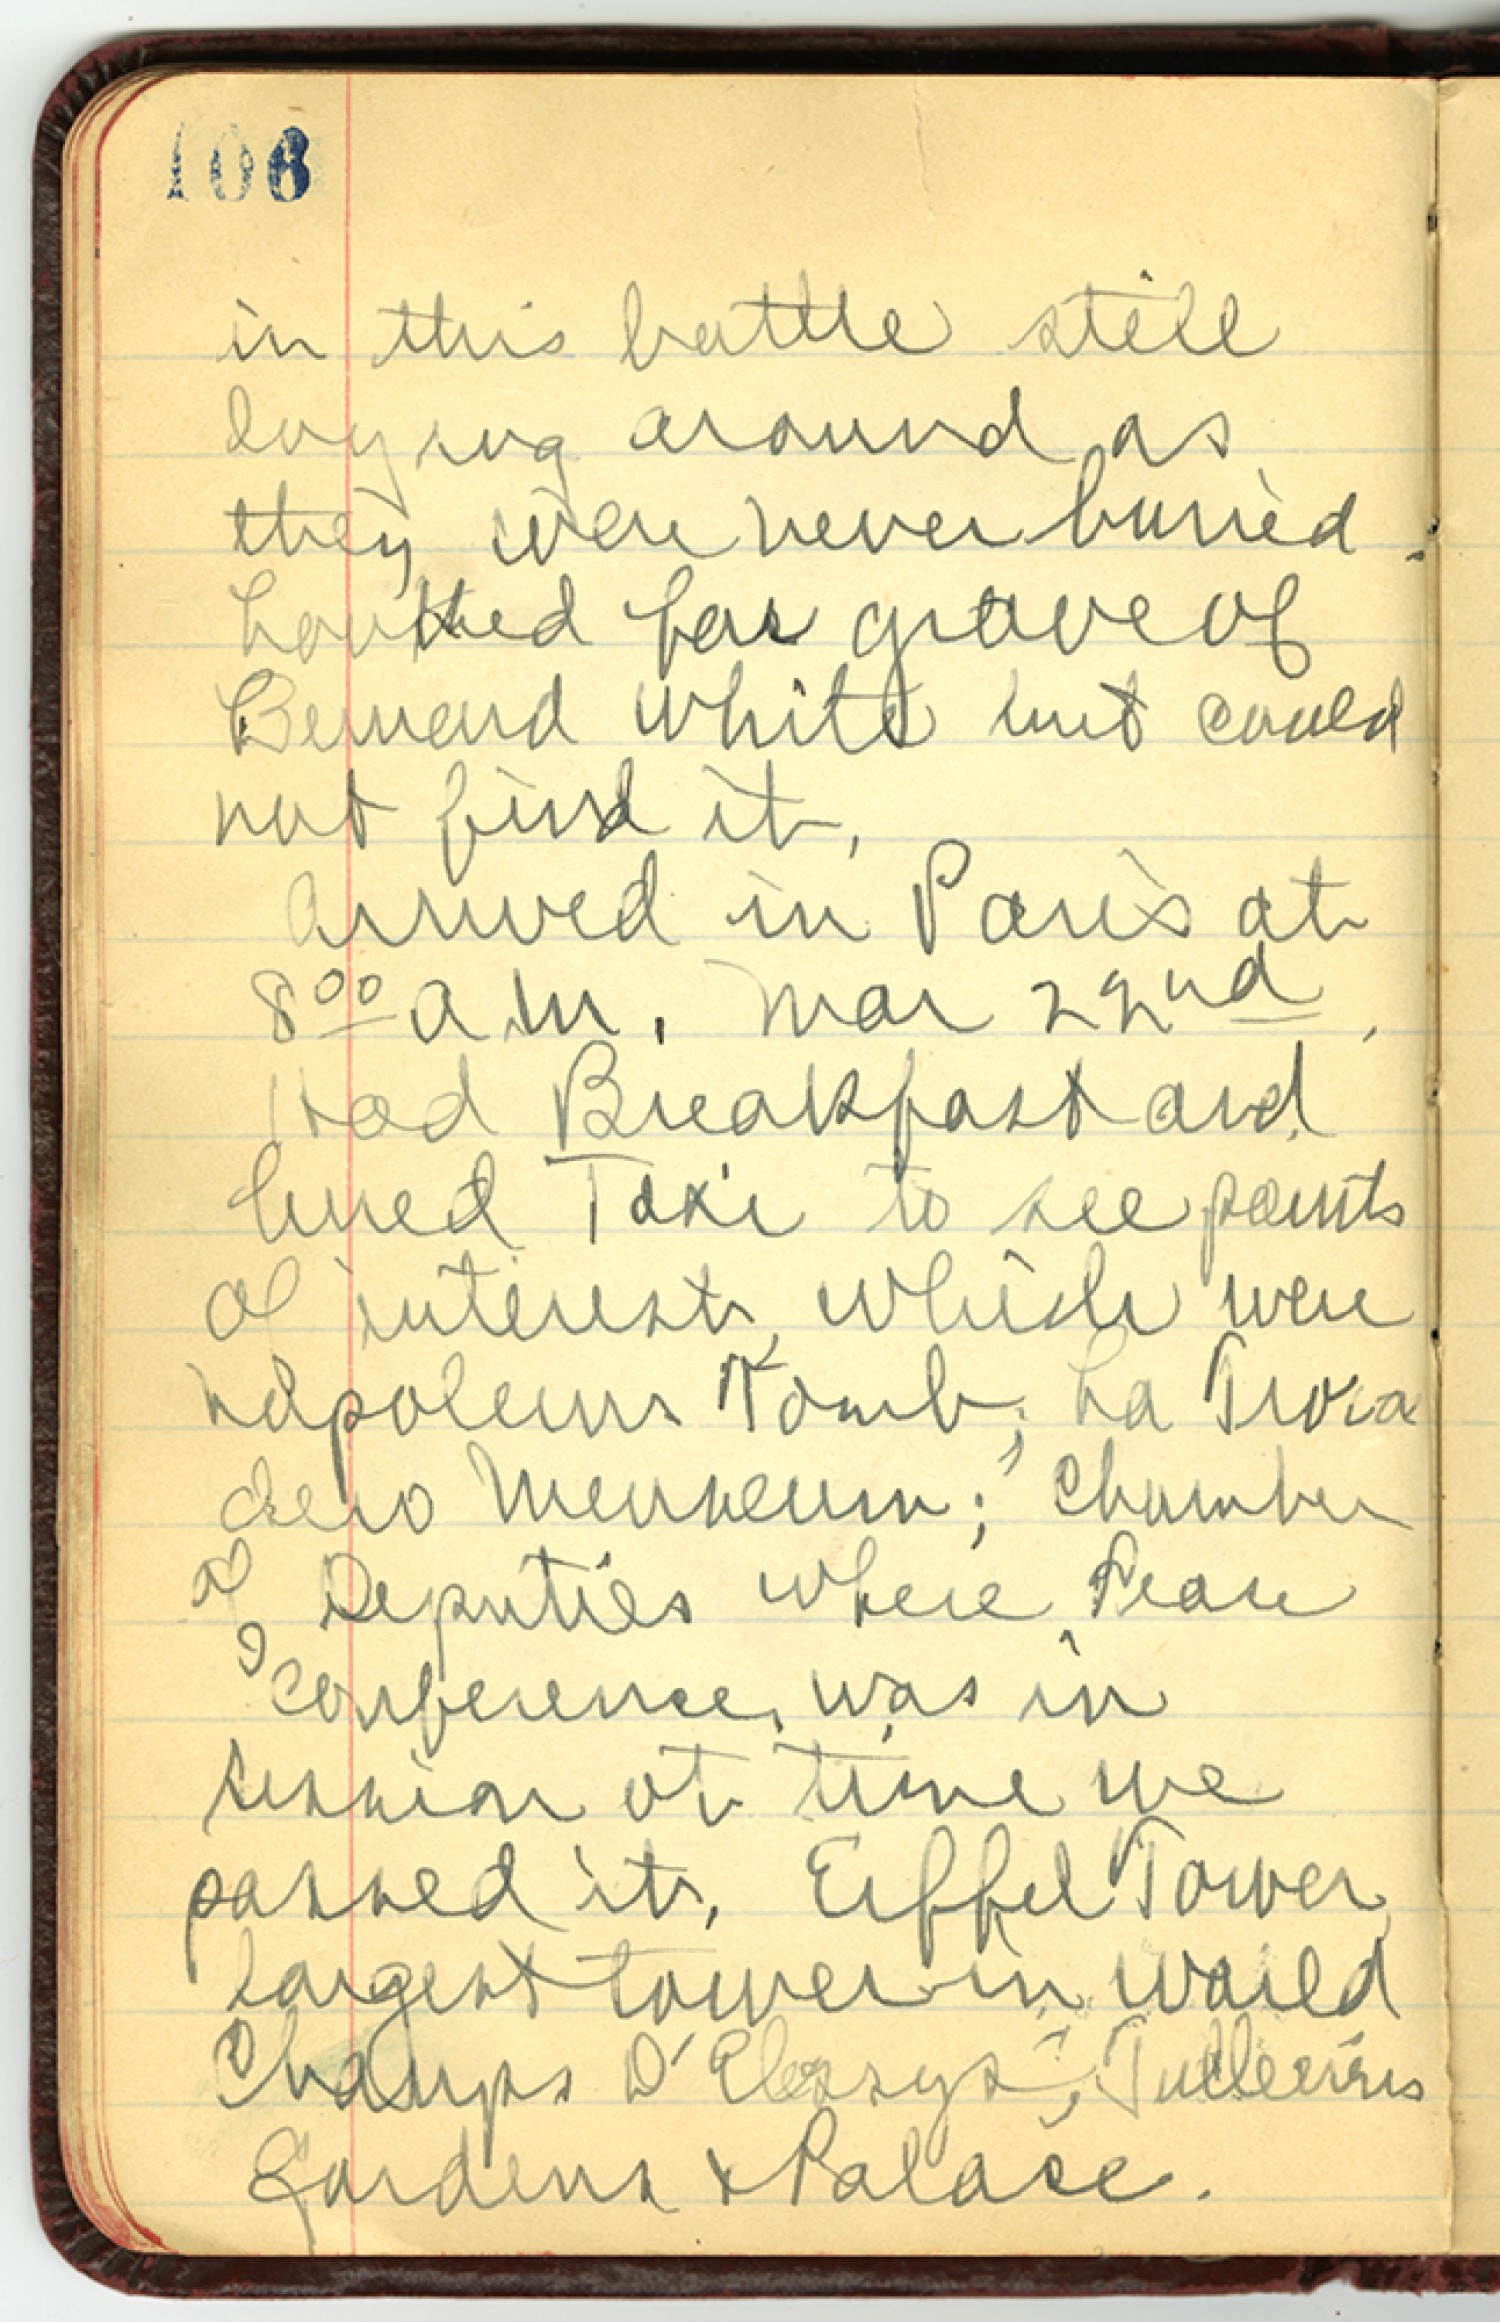 106
in this battle still
laying around as
they were never buried.
Looked for grave of
Bernard White but could
not find it,
Arrived in Paris at
8⁰⁰ a.m. Mar 22nd,
Had Breakfast and
hired Taxi to see points
of interest, which were
Napoleons Tomb; La Troca
dero Meuseum; Chamber
of Deputies where Peace
Conference, was in
session at time we
passed it, Eiffel Tower,
Largest tower in world
Champs D'Elessys; Tulleries
Gardens & Palace.